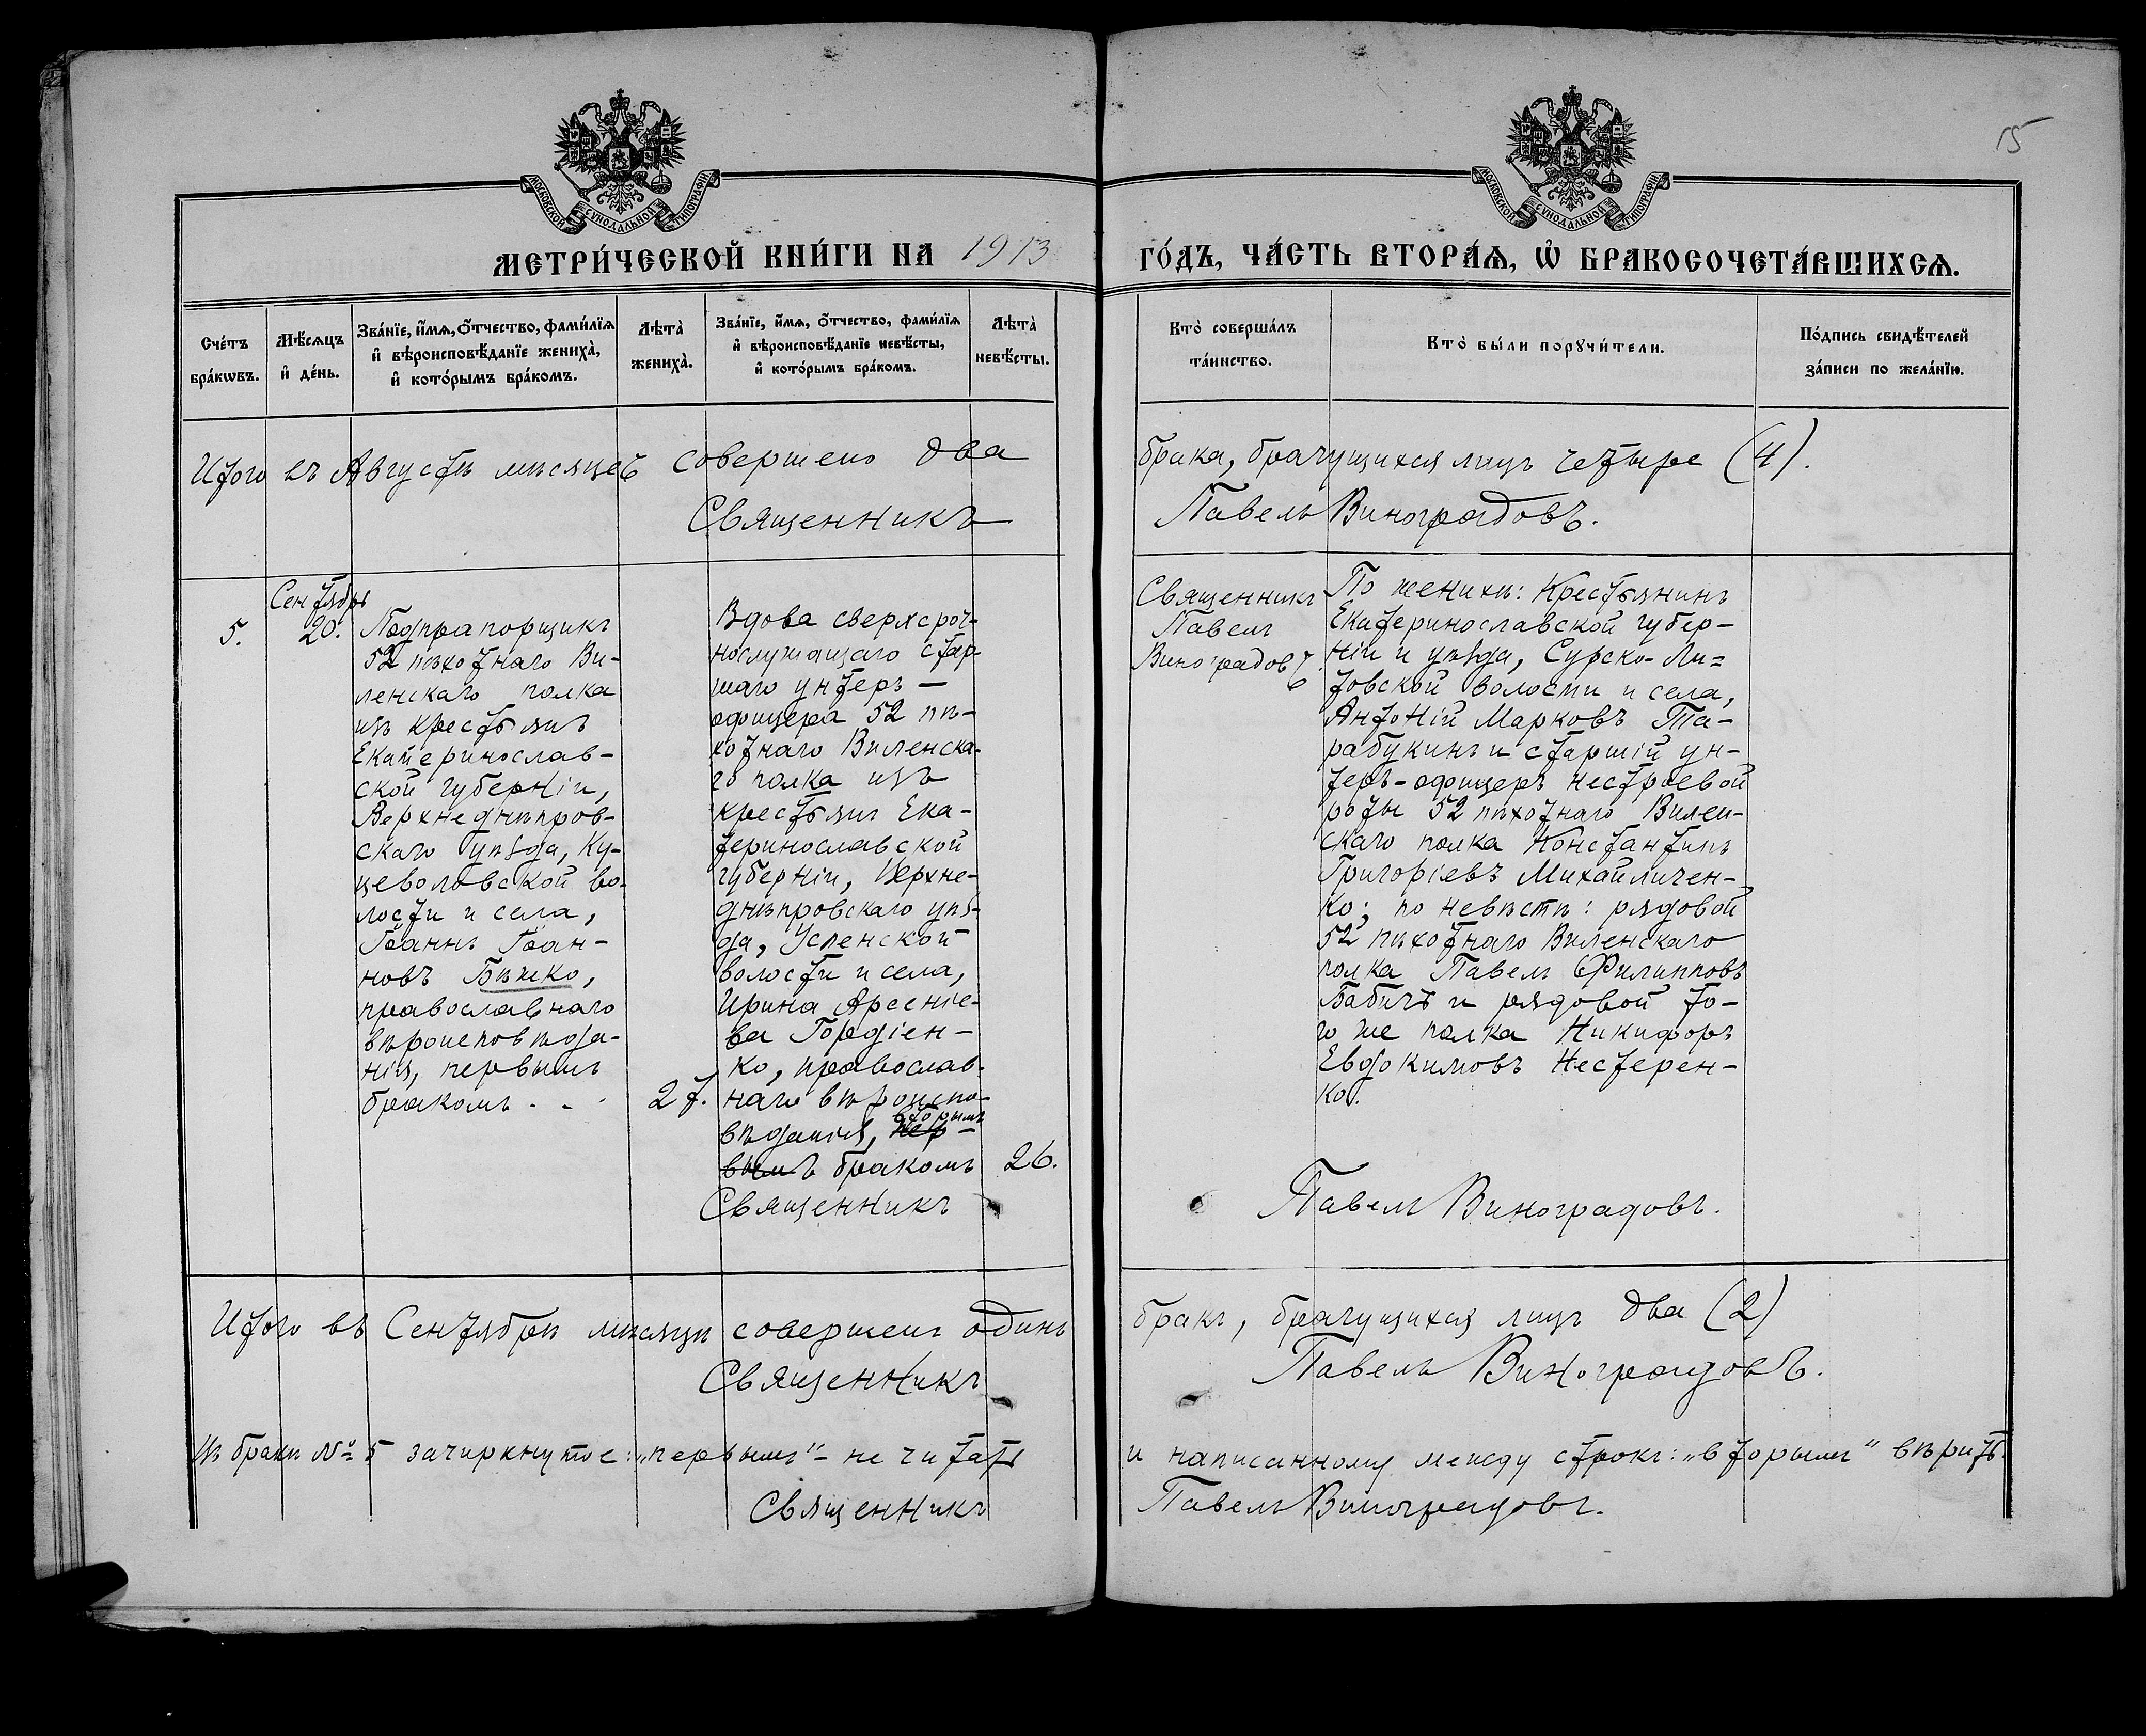 15
МОСКОВСКОЙ СУНОДАЛЬНОЙ ТИПОГРАФІИ
МОСКОВСКОЙ СУНОДАЛЬНОЙ ТИПОГРАФІИ
МЕТРИ́ЧЕСКОЙ КНИ́ГИ НА 1913
ГО́ДЪ, ЧА́СТЬ ВТОРА́Ѧ, Ѡ҆ БРАКОСОЧЕТА́ВШИХСѦ.
Сче́тъ
бра́кѡвъ.
Мѣ́сѧцъ
и҆ де́нь.
Зва́нїе, и҆́мѧ, о҆́тчество, фами́лїѧ
и҆ вѣроисповѣ́данїе жениха̀,
и҆ кото́рымъ бра́комъ.
Лѣта̀
жениха̀.
Зва́нїе, и҆́мѧ, о҆́тчество, фами́лїѧ
и҆ вѣроисповѣ́данїе невѣ́сты,
и҆ кото́рымъ бра́комъ.
Лѣта̀
невѣ́сты.
Кто̀ соверша́лъ
та́инство.
Кто̀ бы́ли порꙋчи́тели.
По́дпись свидѣ́телей
за́писи по жела́нїю.
Итого въ Августѣ мѣсяцеѣ совершено два
брака, брачущихся лицъ четыре (4).
Священникъ
Павелъ Виноградовъ.
5.
Сентябрь
20.
Подпрапорщикъ
52 пѣхотнаго Ви-
ленскаго полка
изъ крестьянъ
Екатеринослав-
ской губерніи,
Верхнеднѣпров-
скаго уѣзда, Ку-
цеволовской во-
лости и села,
Іоаннъ Іоан-
новъ Бѣжко,
православнаго
вѣроисповѣда-
нія, первымъ
бракомъ. . .
27.
Вдова сверхсроч-
нослужащаго стар-
шаго унтеръ-
офицера 52 пѣ-
хотнаго Виленска-
го полка изъ
крестьянъ Ека-
теринославской
губерніи, Верхне-
днѣпровскаго уѣз-
да, Успенской
волости и села,
Ирина Арсеніе-
ва Гордіен-
ко, православ-
наго вѣроиспо-
вторымъ
вѣданія, пер-
вымъ бракомъ
26.
Священникъ
Священникъ
Павелъ
Виноградовъ
По женихѣ: Крестьянинъ
Екатеринославской губер-
ніи и уѣзда, Сурско-Ли-
товской волости и села,
Антоній Марковъ Та-
рабукинъ и старшій ун-
теръ-офицеръ нестроевой
роты 52 пѣхотнаго Вилен-
скаго полка Константинъ
Григоріевъ Михайличен-
ко; по невѣстѣ: рядовой
52 пѣхотнаго Виленскаго
полка Павелъ Филипповъ
Бабичъ и рядовой то-
го же полка Никифоръ
Евдокимовъ Нестерен-
ко.
Павелъ Виноградовъ.
Итого въ Сентябрѣ мѣсяцѣ совершенъ одинъ
бракъ, брачущихся лицъ два (2)
Священникъ
Павелъ Виноградовъ.
Въ бракѣ № 5 зачеркнутое: „первымъ" - не читать
и написанному между строкъ: „вторымъ" вѣрить.
Священникъ
Павелъ Виноградовъ.